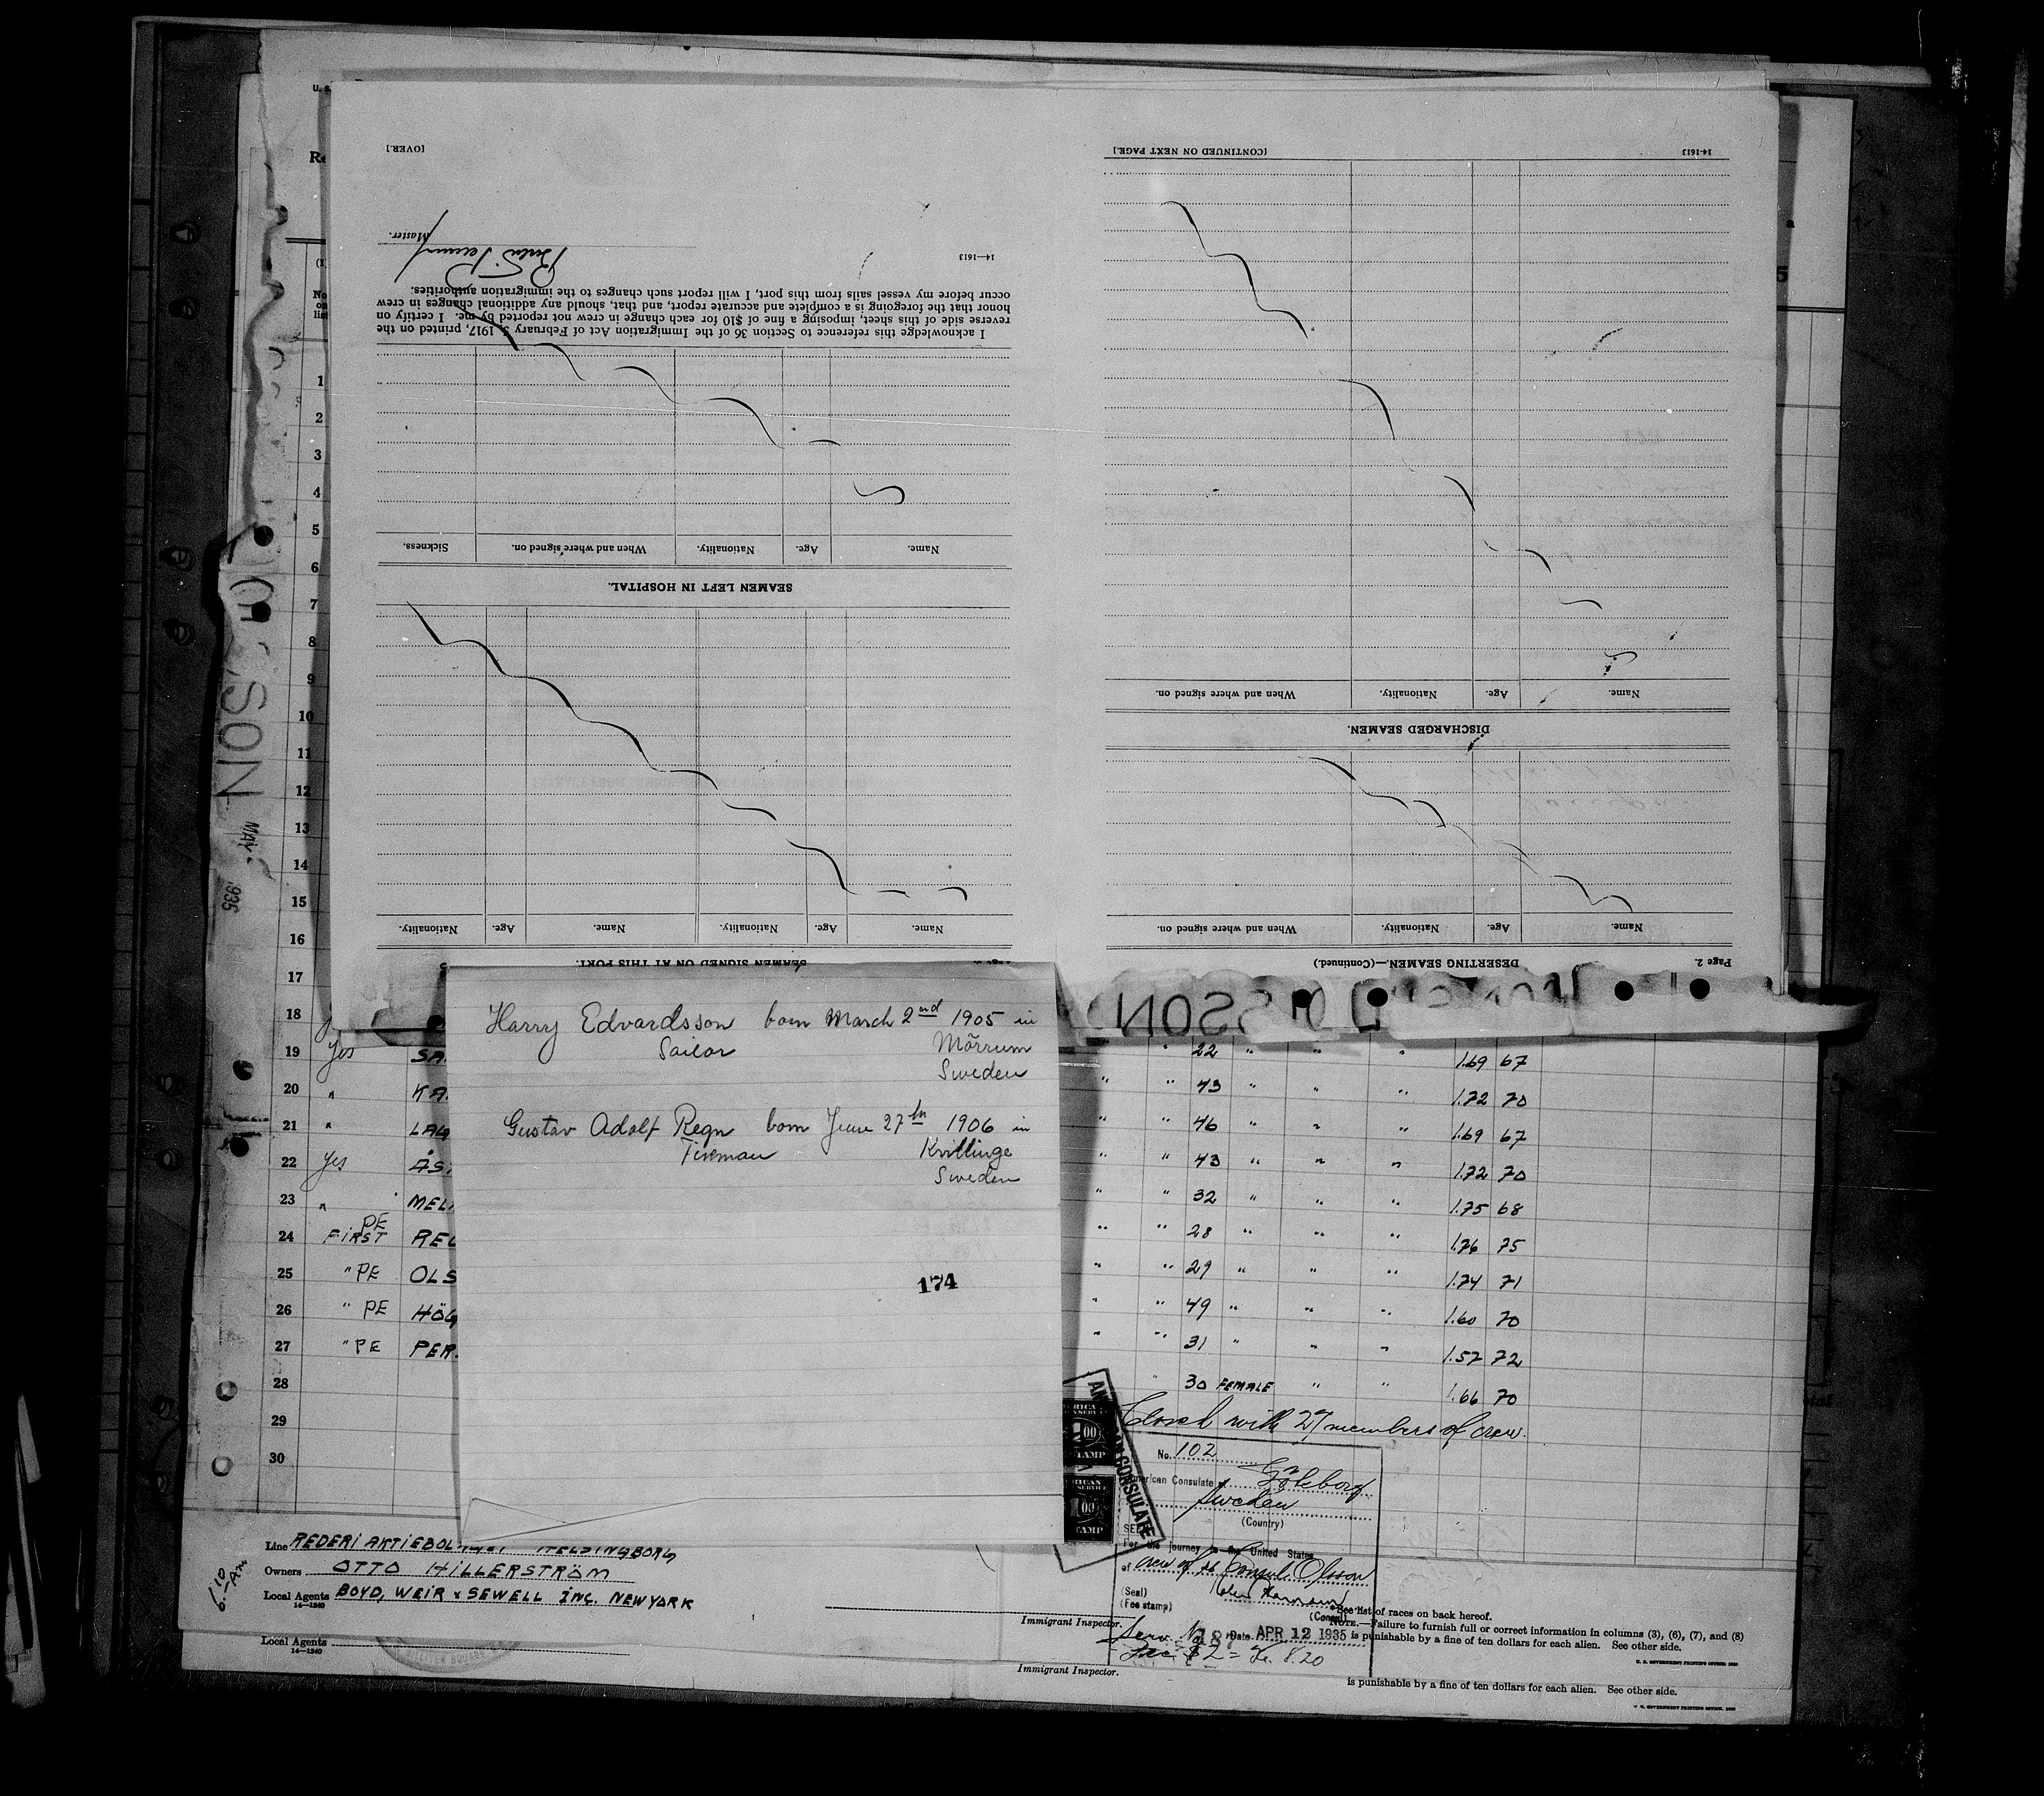 [OVER.]
Master.
14—1613
I acknowledge this reference to Section 36 of the Immigration Act of February 5, 1917, printed on the
reverse side of this sheet, imposing a fine of $10 for each change in crew not reported by me. I certify on
honor that the foregoing is a complete and accurate report, and that, should any additional changes in crew
occur before my vessel sails from this port, I will report such changes to the immigration authorities.
Name. Age. Nationality. When and where signed on. Sickness.
SEAMEN LEFT IN HOSPITAL.
Name. Age. Nationality. Name. Age. Nationality.
SEAMEN SIGNED ON AT THIS PORT.
14-1613
[CONTINUED ON NEXT PAGE.]
Name. Age. Nationality. When and where signed on.
DISCHARGED SEAMEN.
Name. Age. Nationality. When and where signed on.
Page 2. DESERTING SEAMEN.—(Continued.)
SON
MAY
1
2
3
4
5
6
7
8
9
10
11
12
13
14
15
16
17
18
Harry Edvardsson born March 2nd 1905 in
Sailor Mörrum
Sweden
Gustav Adolf Regn born June 27th 1906 in
Fireman Kvillinge
Sweden
174
19 Yes SA 22 " " " 1.69 67
20 " KA " " 43 " " " 1.72 70
21 " LAG " " 46 " " " 1.69 67
22 Yes ÅS " " 43 " " " 1.72 70
23 " MEL " " 32 " " " 1.75 68
24 PE FIRST REG " " 28 " " " 1.76 75
25 " PE OLS " " 29 " " " 1.74 71
26 " PE HÖG " " 49 " " " 1.60 70
27 " PE PER " " 31 " " " 1.57 72
28 " 30 FEMALE " " 1.66 70
29
30
Closed with 27 members of crew.
No. 102
American Consulate Göteborg
Sweden
(Country)
CONSULATE
For the journey to the United States
of crew of ss Consul Olsson
(Seal)
(Fee stamp)
(Consul)
Date APR 12 1935
Serv. No 187
Fee $2 = Kr. 8.20
Line REDERI AKTIEBOLAGET HELSINGBORG
Owners OTTO HILLERSTRÖM
Local Agents BOYD, WEIR & SEWELL INC. NEW YORK
14—1240
6.10 AM
Immigrant Inspector.
*See list of races on back hereof.
NOTE.—Failure to furnish full or correct information in columns (3), (6), (7), and (8)
is punishable by a fine of ten dollars for each alien. See other side.
U. S. GOVERNMENT PRINTING OFFICE
Local Agents
14—1240
Immigrant Inspector.
is punishable by a fine of ten dollars for each alien. See other side.
U. S. GOVERNMENT PRINTING OFFICE